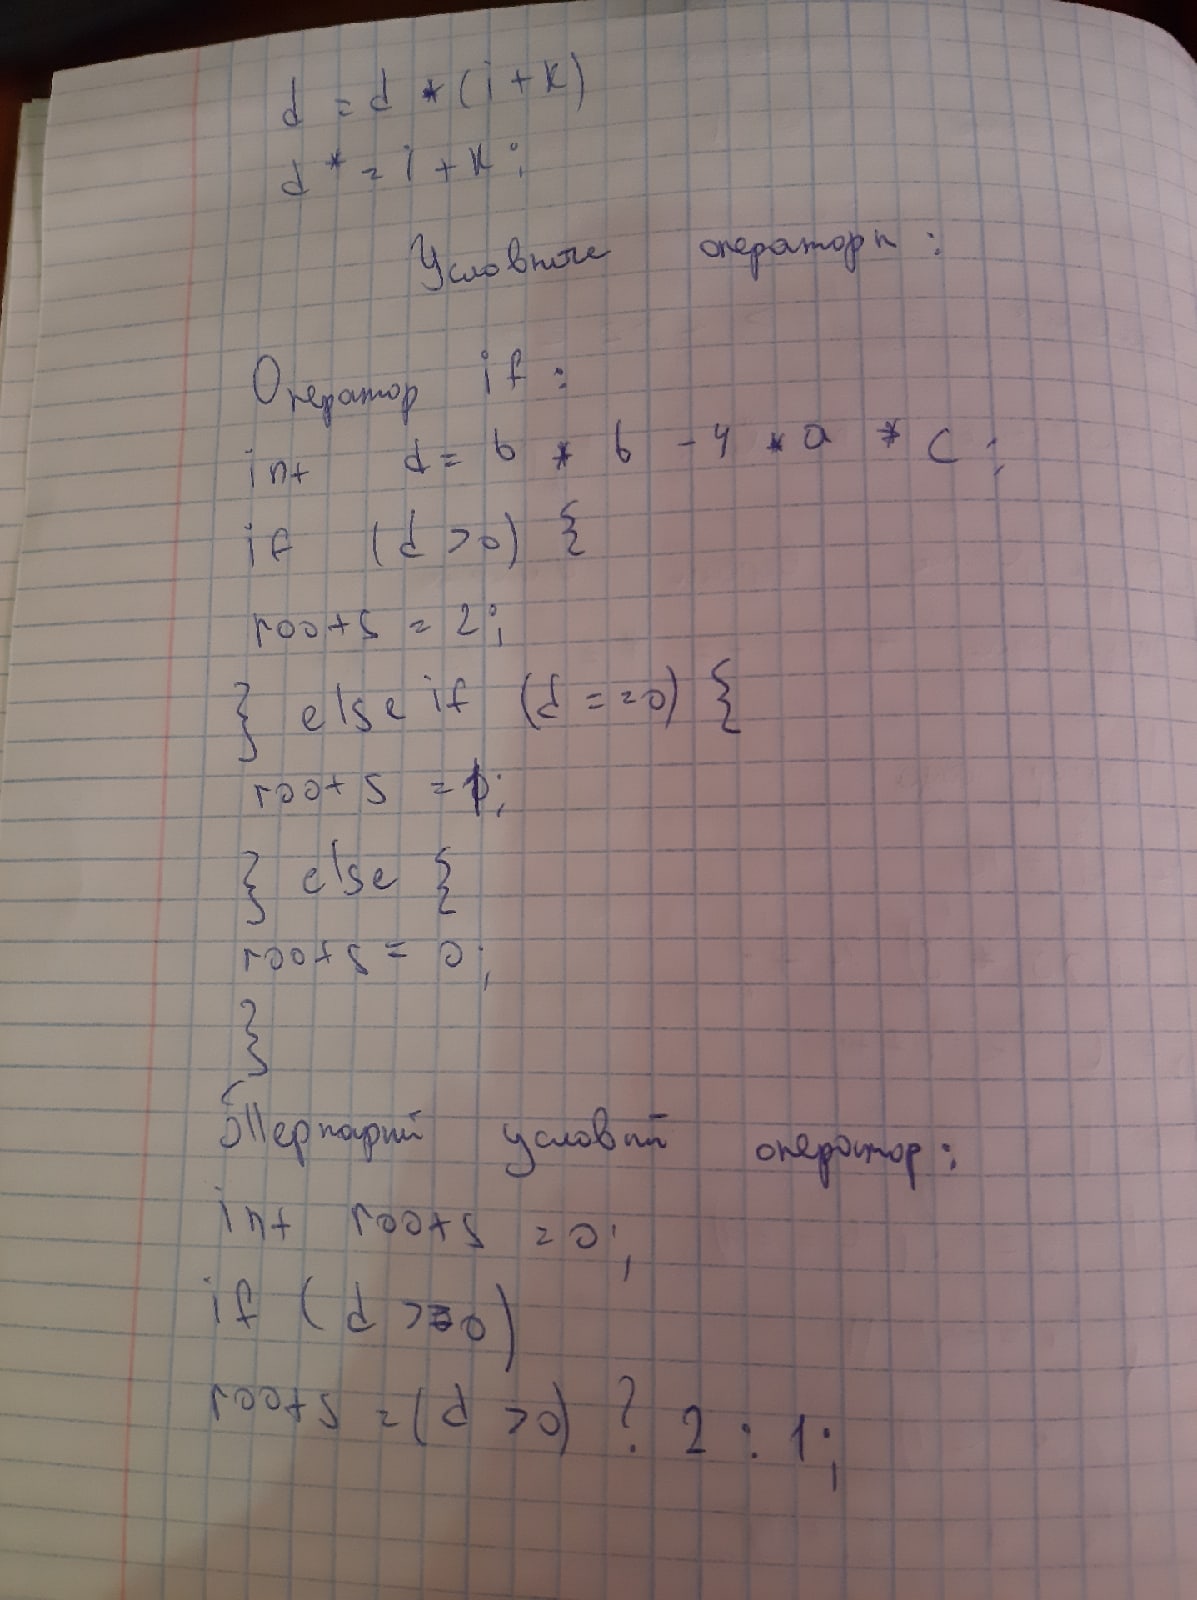 d = d * (i + k)
d * = i + k ;
Условные операторы :
Оператор if :
int d = b * b - 4 * a * c ;
if (d > 0) {
roots = 2 ;
} else if (d = = 0) {
roots = 1 ;
} else {
roots = 0 ;
}
Тернарий условий оператор :
int roots = 0 ;
if (d >= 0)
roots = (d > 0) ? 2 : 1 ;